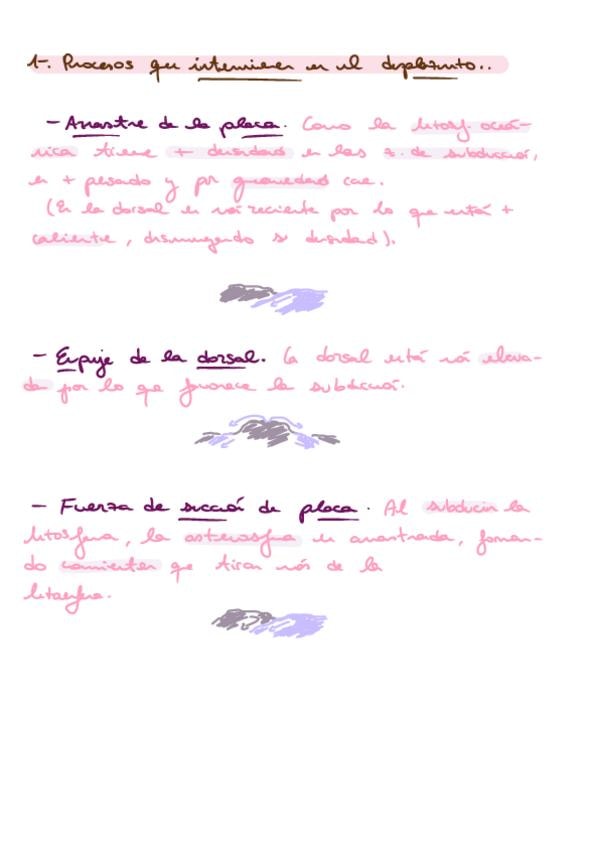 1. Procesos que intervienen en el desplazmto..
- Arrastre de la placa. Como la litosf. oceá-
nica tiene + densidad en las z. de subducción,
es + pesado y por gravedad cae.
(En la dorsal es más reciente por lo que está +
caliente, disminuyendo su densidad).
- Empuje de la dorsal. La dorsal está más eleva-
da por lo que favorece la subducción.
- Fuerza de succión de placa. Al subducir la
litosfera, la astenosfera es arrastrada, forman-
do corrientes que tiran más de la
litosfera.